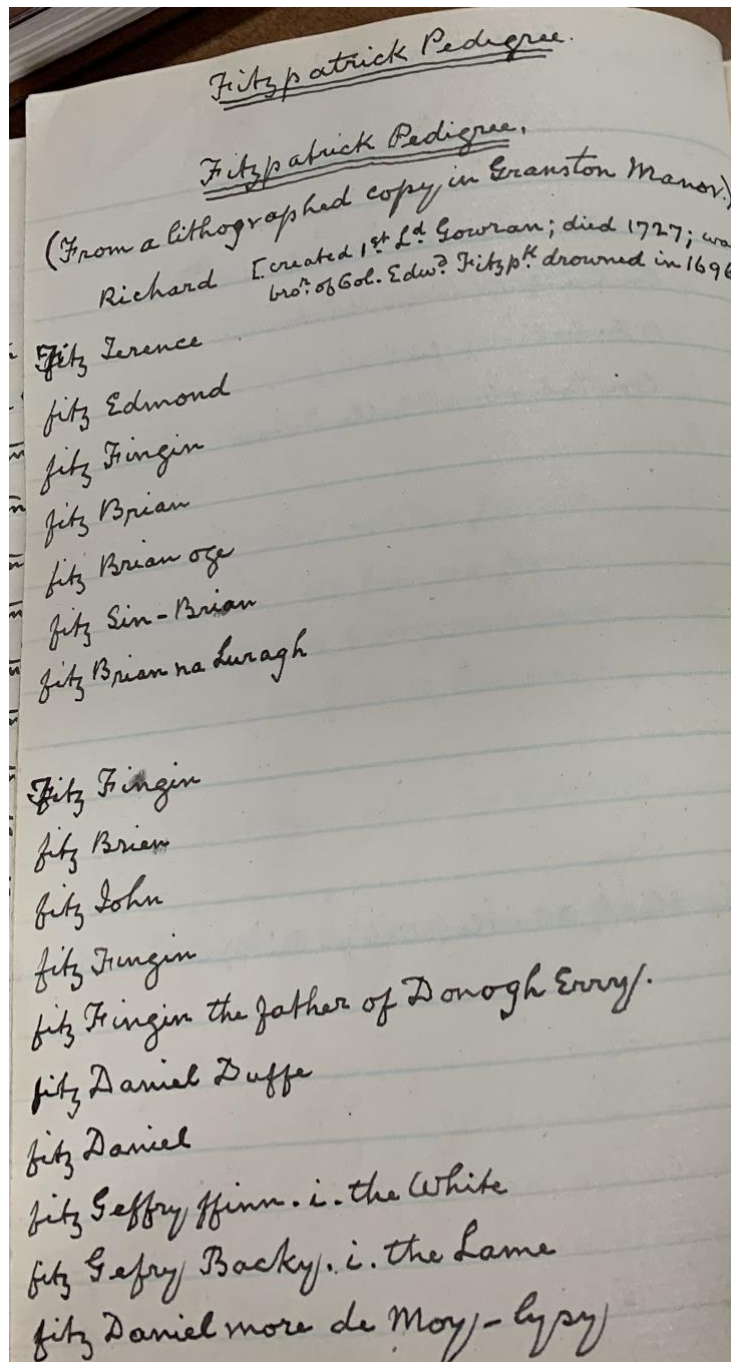 Fitzpatrick Pedigree.
Fitzpatrick Pedigree.
(From a lithographed copy in Granston Manor.)
Richard [created 1st Ld. Gowran; died 1727; wa
bror. of Col. Edwd. Fitzpk. drowned in 1696
Fitz Terence
fitz Edmond
fitz Fingin
fitz Brian
fitz Brian oge
fitz Sin-Brian
fitz Brian na Luragh
Fitz Fingin
fitz Brien
fitz John
fitz Fingin
fitz Fingin the father of Donogh Errry.
fitz Daniel Duffe
fitz Daniel
fitz Geffry ffinn .i. the White
fitz Gefry Backy .i. the Lame
fitz Daniel more de Moy-lypy